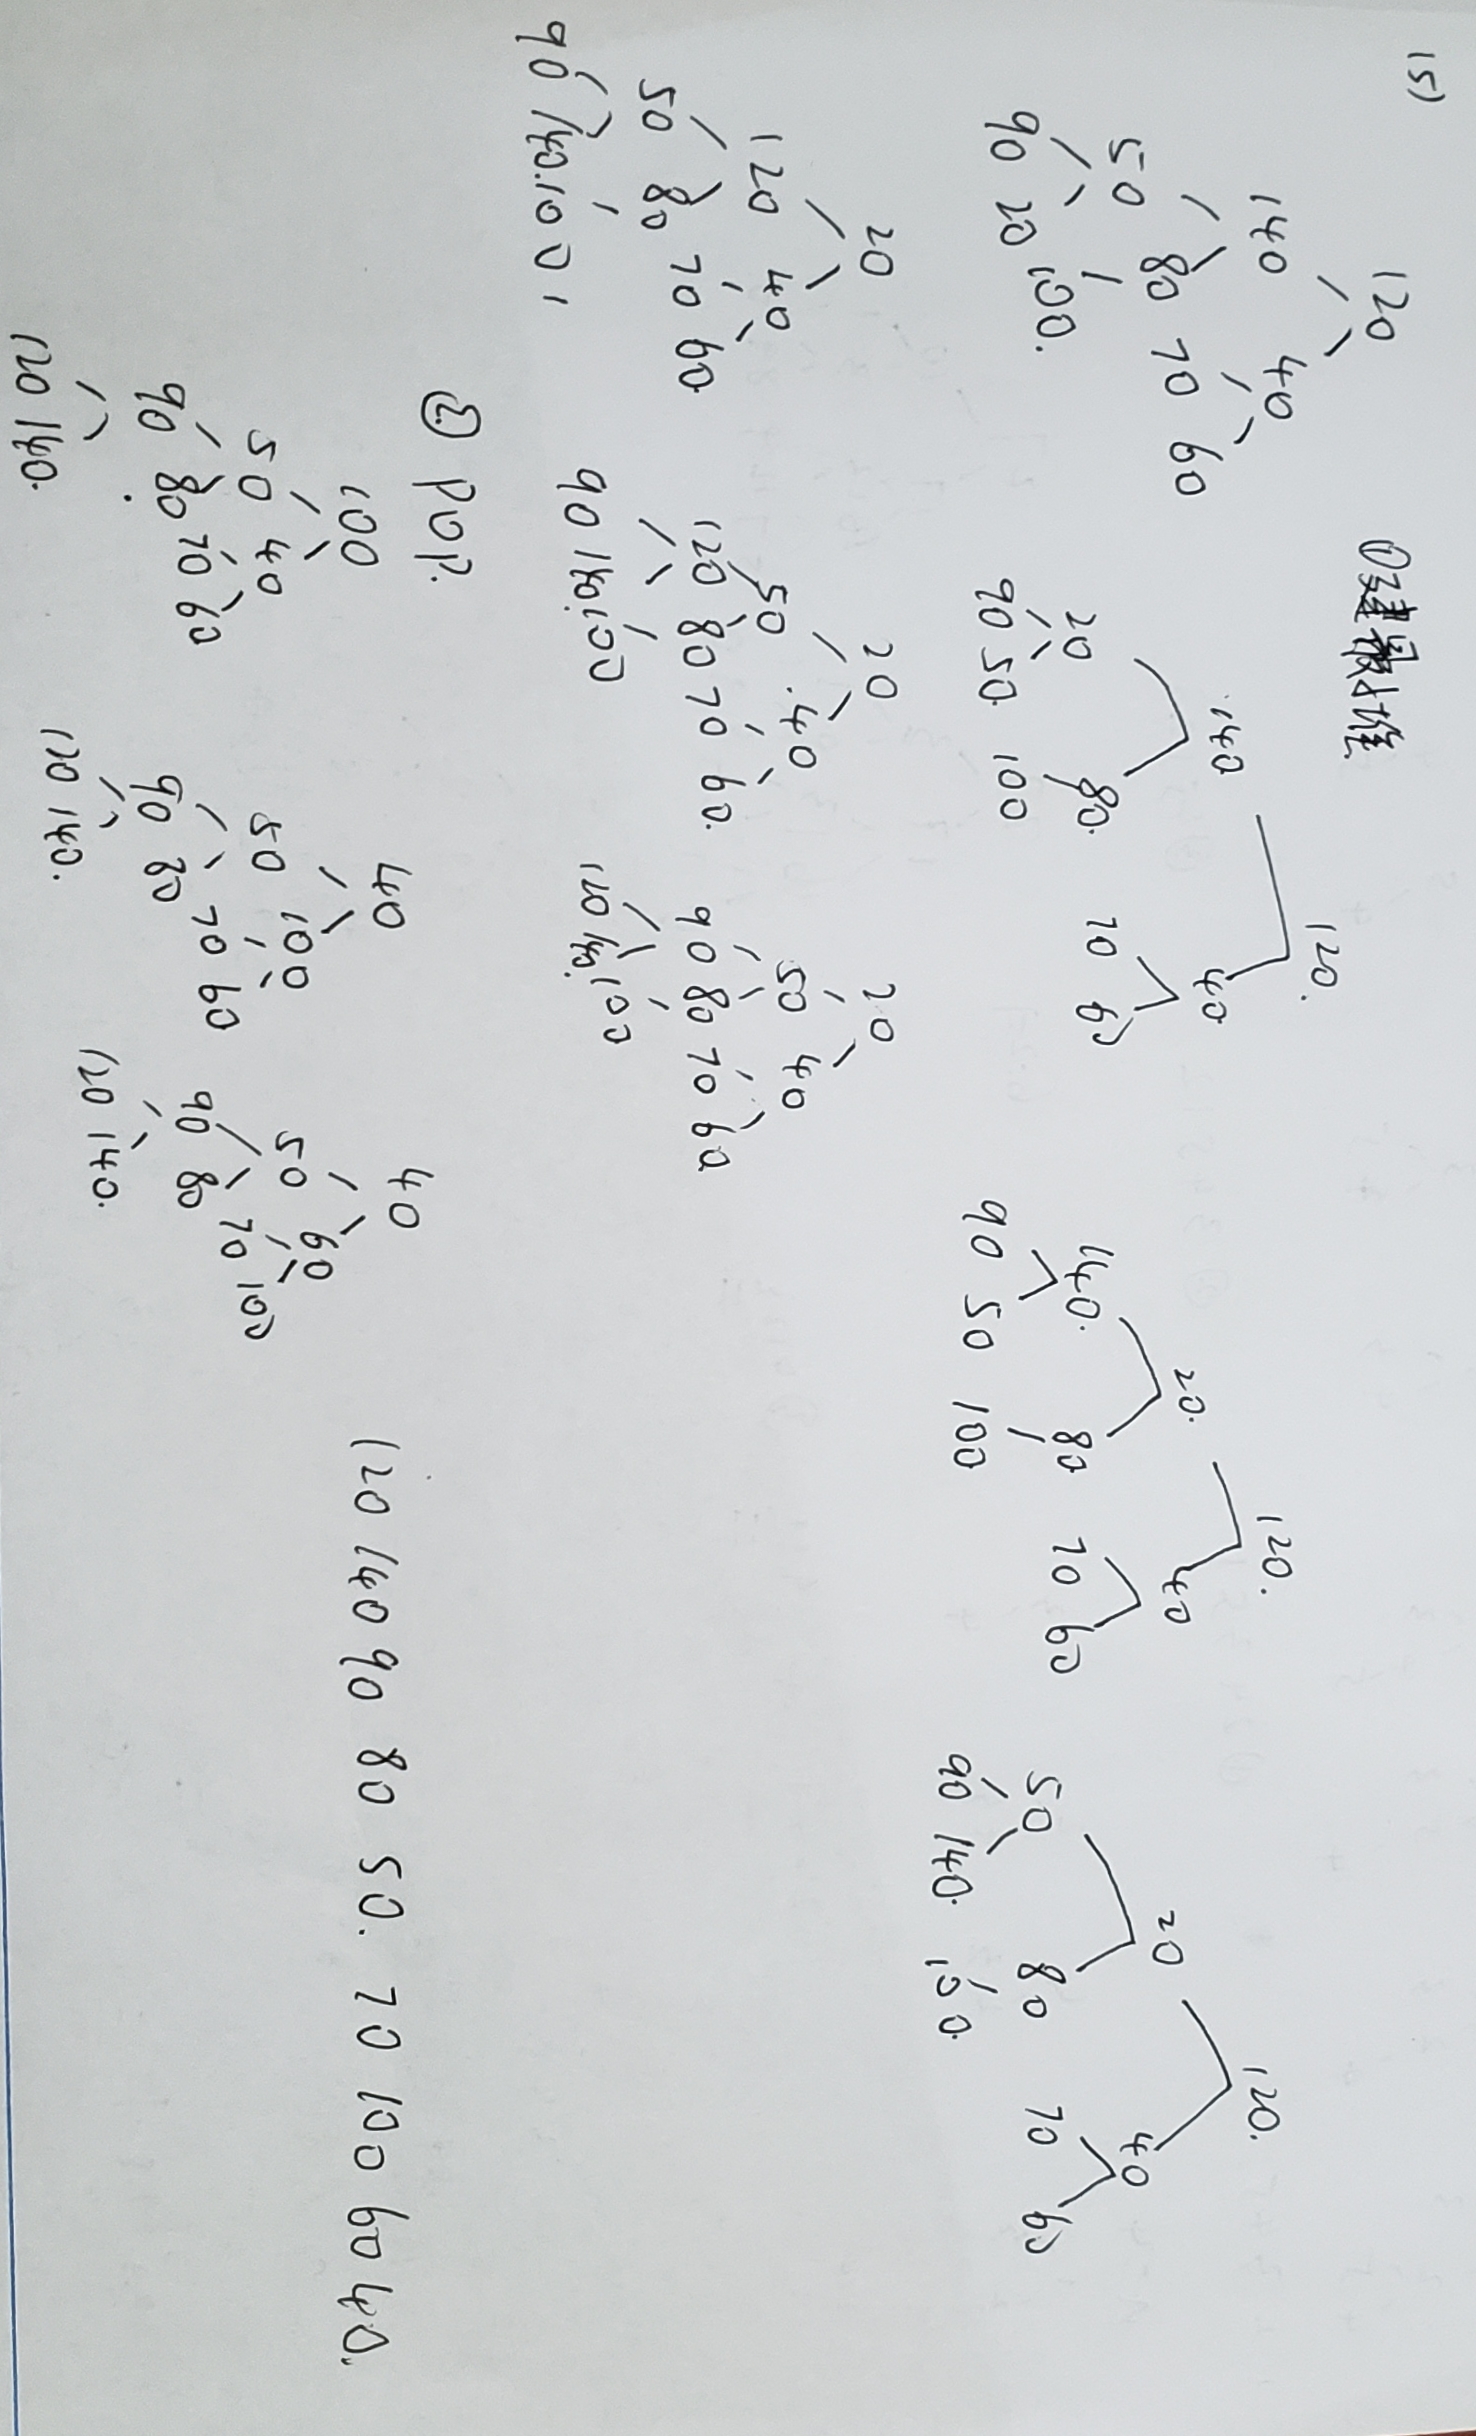 15)
120
①建最小堆
140 40
50 80 70 60
90 20 100.
120.
140 40
20 80. 70 60
90 50. 100
120.
20. 40
140. 80 70 60
90 50 100
120.
20 40
50 80 70 60
90 140. 100.
20
120 40
50 80 70 60.
90 140. 100,
20
50 .40
120 80 70 60.
90 140. 100
20
50 40
90 80 70 60
120 140. 100
② pop.
100
50 40
90 80 70 60
120 140.
40
50 100
90 80 70 60
120 140.
40
50 60
90 80 70 100
120 140.
120 140 90 80 50. 70 100 60 40.